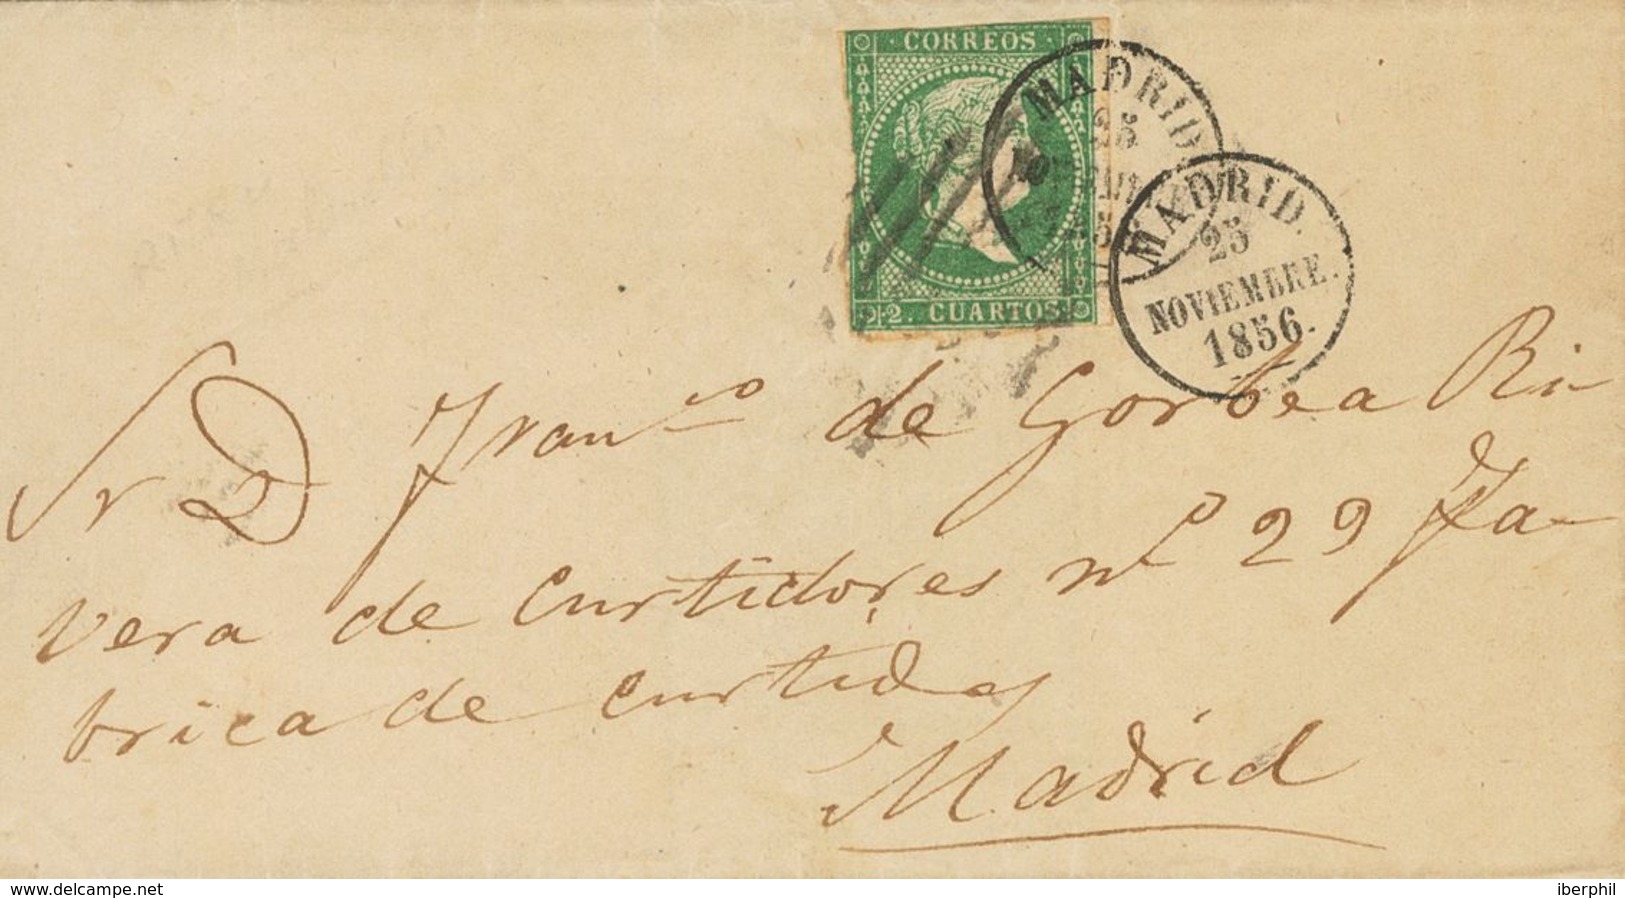 · CORREOS ·
2. CUARTOS
MADRID
25
MADRID.
25
NOVIEMBRE.
1856.
Sr D Franco de Gorbea Ri-
vera de Curtidores no 29 Fa-
brica de curtidos
Madrid
www.delcampe.net
iberphil